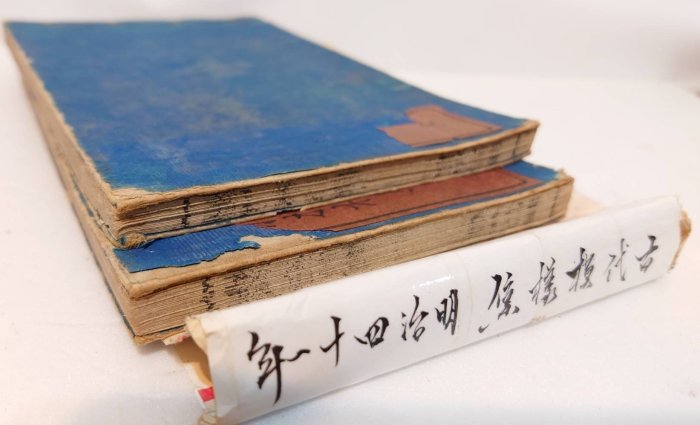 古代模様集 明治四十一年